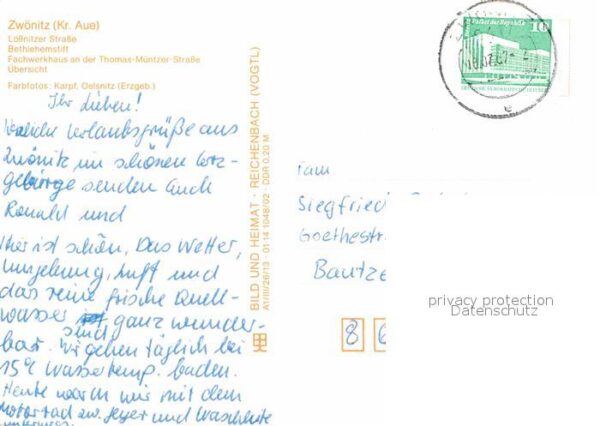 Zwönitz (Kr. Aue)
Lößnitzer Straße
Bethlehemstift
Fachwerkhaus an der Thomas-Müntzer-Straße
Übersicht
Farbfotos: Karpf, Oelsnitz (Erzgeb.)
Ihr Lieben!
Herzliche Urlaubsgrüße aus
Zwönitz im schönen Erz-
gebirge senden Euch
Ronald und
Hier ist schön. Das Wetter,
Umgebung, Luft und
das reine frische Quell-
wasser sind ganz wunder-
bar. Wir gehen täglich bei
15° Wassertemp. baden.
Heute waren wir mit dem
Motorrad zw. Geyer und
unterwegs.
BILD UND HEIMAT · REICHENBACH (VOGTL)
A1/III/26/13 · 01 14 1048/02 · DDR 0,20 M
Palast der Republik 10
DEUTSCHE DEMOKRATISCHE REPUBLIK
Fam
Siegfried
Goethestr
Bautze
privacy protection
Datenschutz
8 6